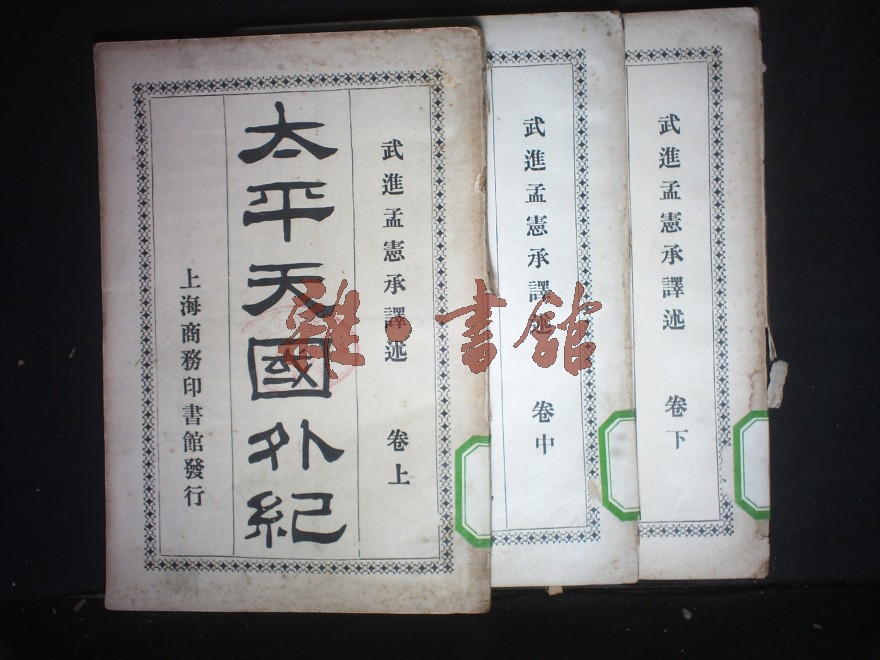 武進孟憲承譯述 卷上
太平天國外紀
上海商務印書館發行
武進孟憲承譯述 卷中
武進孟憲承譯述 卷下
雜·書館